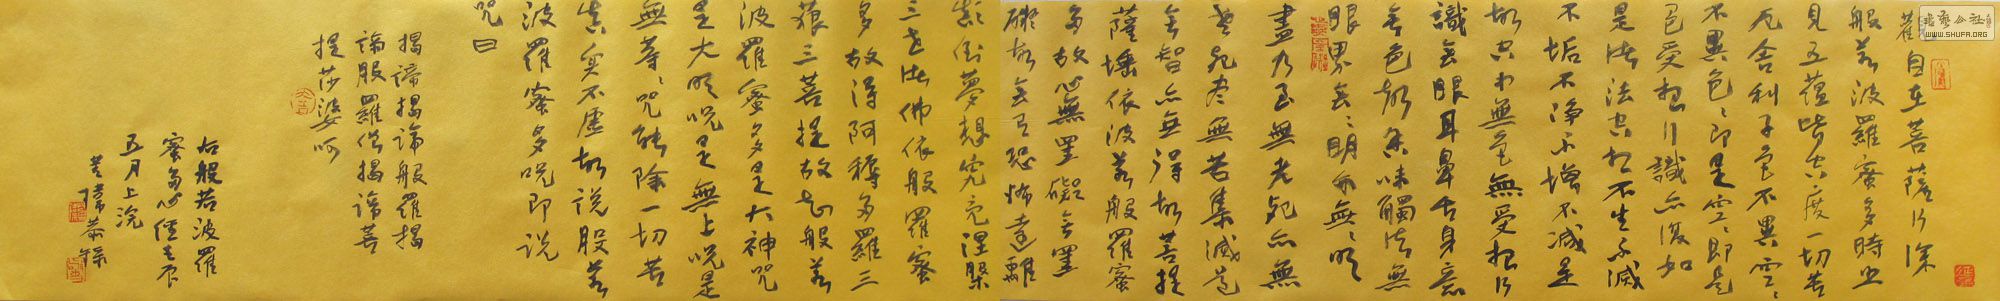 觀自在菩薩行深
般若波羅蜜多時照
見五蘊皆空度一切苦
厄舍利子色不異空々
不異色々即是空々即是
色受想行識亦復如
是諸法空相不生不滅
不垢不淨不增不減是
故空中無色無受想行
識無眼耳鼻舌身意
無色聲香味觸法無
眼界無々明亦無々明
盡乃至無老死亦無
老死盡無苦集滅道
無智亦無得故菩提
薩埵依波若般羅蜜
多故心無罣礙無罣
礙故無有恐怖遠離
顛倒夢想究竟涅槃
三世諸佛依般羅蜜
多故得阿耨多羅三
藐三菩提故知般若
波羅蜜多是大神咒
是大明咒是無上咒是
無等々咒能除一切苦
真實不虛故說般若
波羅蜜多咒即說
咒曰
揭諦揭諦般羅揭
諦般羅僧揭諦菩
提莎婆呵
右般若波羅
蜜多心經
五月上浣
書法公社
WWW.SHUFA.ORG